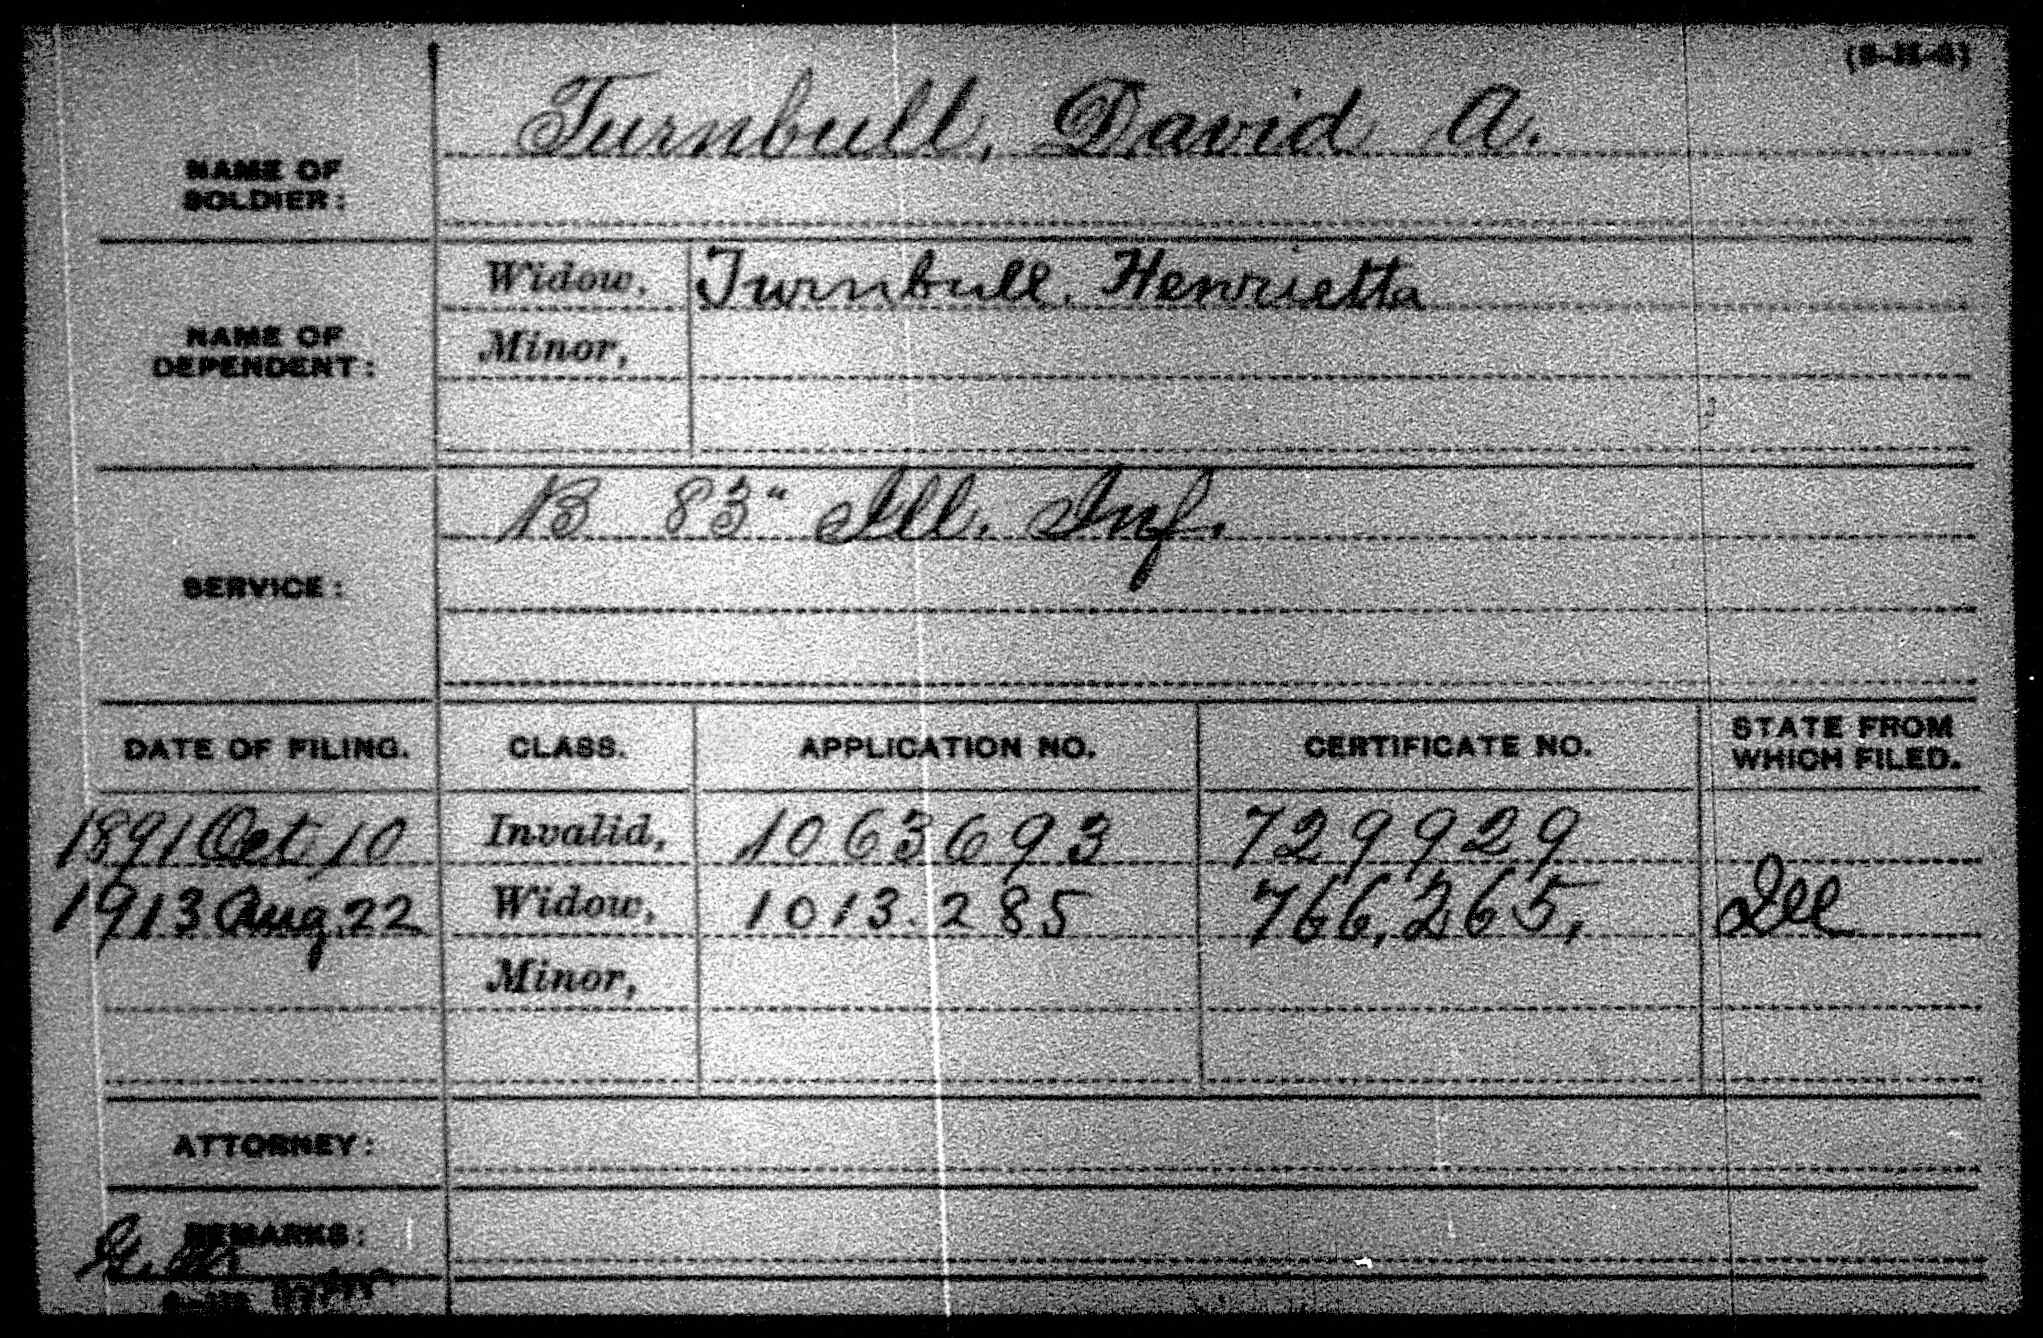 (3-31-3)
Turnbull, David A.
NAME OF
SOLDIER:
Widow, Turnbull, Henrietta
NAME OF
DEPENDENT:
Minor,
B 83" Ill. Inf.
SERVICE:
DATE OF FILING. CLASS. APPLICATION NO. CERTIFICATE NO. STATE FROM
WHICH FILED.
1891 Oct. 10 Invalid, 1063693 729929
1913 Aug. 22 Widow, 1013.285 766,265, Ill
Minor,
ATTORNEY:
REMARKS: